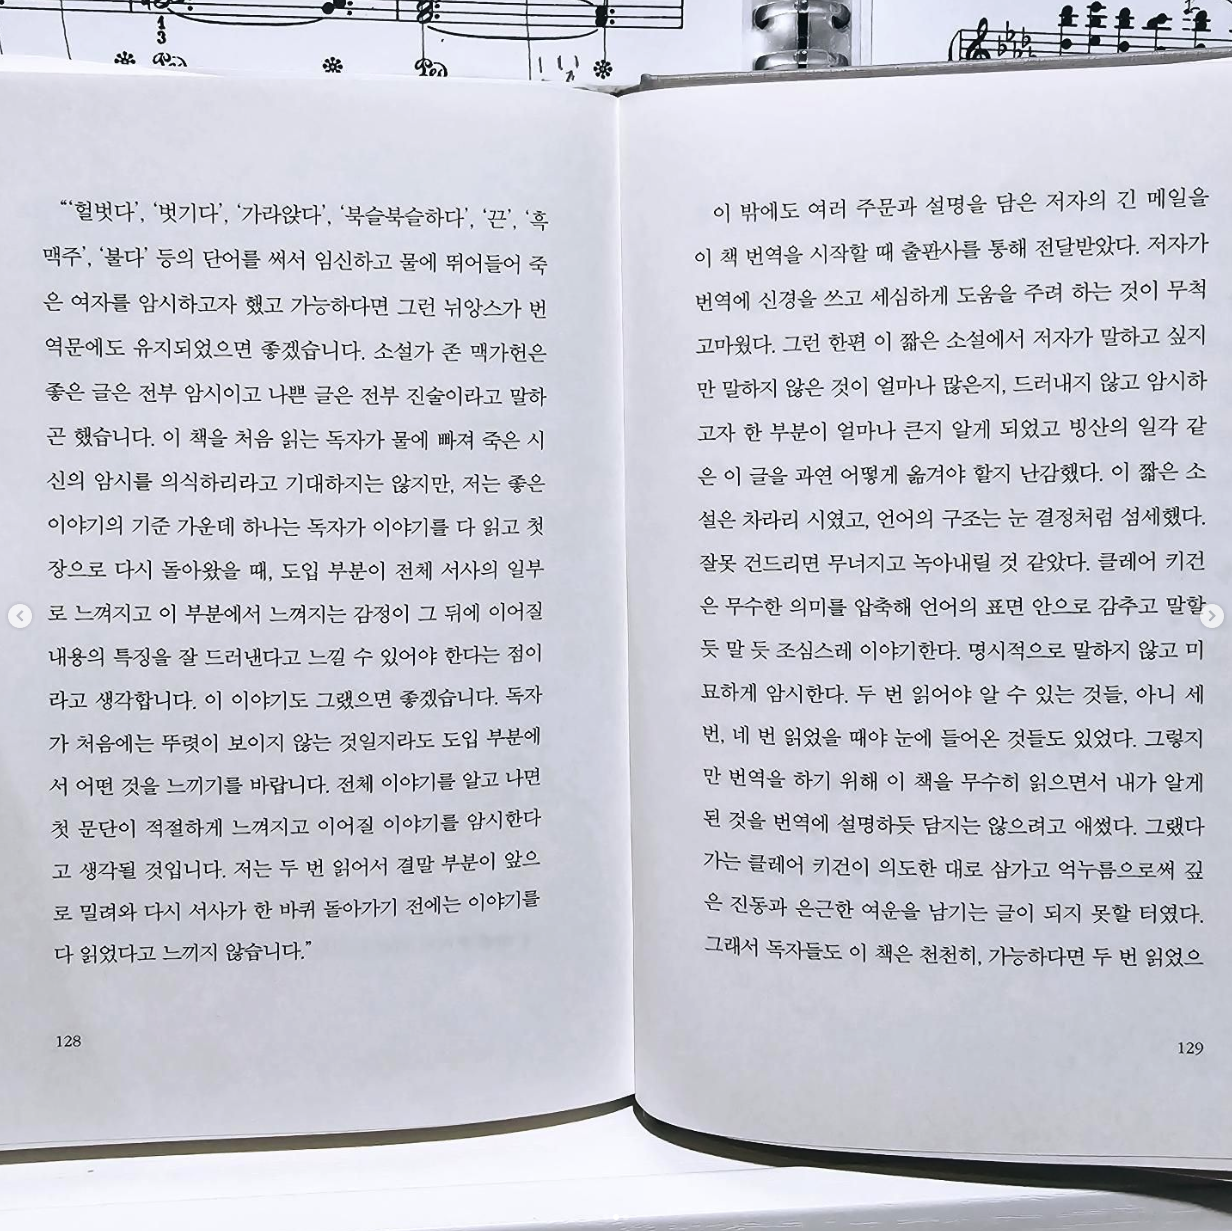 “‘헐벗다’, ‘벗기다’, ‘가라앉다’, ‘북슬북슬하다’, ‘끈’, ‘흑
맥주’, ‘불다’ 등의 단어를 써서 임신하고 물에 뛰어들어 죽
은 여자를 암시하고자 했고 가능하다면 그런 뉘앙스가 번
역문에도 유지되었으면 좋겠습니다. 소설가 존 맥가헌은
좋은 글은 전부 암시이고 나쁜 글은 전부 진술이라고 말하
곤 했습니다. 이 책을 처음 읽는 독자가 물에 빠져 죽은 시
신의 암시를 의식하리라고 기대하지는 않지만, 저는 좋은
이야기의 기준 가운데 하나는 독자가 이야기를 다 읽고 첫
장으로 다시 돌아왔을 때, 도입 부분이 전체 서사의 일부
로 느껴지고 이 부분에서 느껴지는 감정이 그 뒤에 이어질
내용의 특징을 잘 드러낸다고 느낄 수 있어야 한다는 점이
라고 생각합니다. 이 이야기도 그랬으면 좋겠습니다. 독자
가 처음에는 뚜렷이 보이지 않는 것일지라도 도입 부분에
서 어떤 것을 느끼기를 바랍니다. 전체 이야기를 알고 나면
첫 문단이 적절하게 느껴지고 이어질 이야기를 암시한다
고 생각될 것입니다. 저는 두 번 읽어서 결말 부분이 앞으
로 밀려와 다시 서사가 한 바퀴 돌아가기 전에는 이야기를
다 읽었다고 느끼지 않습니다.”
128
이 밖에도 여러 주문과 설명을 담은 저자의 긴 메일을
이 책 번역을 시작할 때 출판사를 통해 전달받았다. 저자가
번역에 신경을 쓰고 세심하게 도움을 주려 하는 것이 무척
고마웠다. 그런 한편 이 짧은 소설에서 저자가 말하고 싶지
만 말하지 않은 것이 얼마나 많은지, 드러내지 않고 암시하
고자 한 부분이 얼마나 큰지 알게 되었고 빙산의 일각 같
은 이 글을 과연 어떻게 옮겨야 할지 난감했다. 이 짧은 소
설은 차라리 시였고, 언어의 구조는 눈 결정처럼 섬세했다.
잘못 건드리면 무너지고 녹아내릴 것 같았다. 클레어 키건
은 무수한 의미를 압축해 언어의 표면 안으로 감추고 말할
듯 말 듯 조심스레 이야기한다. 명시적으로 말하지 않고 미
묘하게 암시한다. 두 번 읽어야 알 수 있는 것들, 아니 세
번, 네 번 읽었을 때야 눈에 들어온 것들도 있었다. 그렇지
만 번역을 하기 위해 이 책을 무수히 읽으면서 내가 알게
된 것을 번역에 설명하듯 담지는 않으려고 애썼다. 그랬다
가는 클레어 키건이 의도한 대로 삼가고 억누름으로써 깊
은 진동과 은근한 여운을 남기는 글이 되지 못할 터였다.
그래서 독자들도 이 책은 천천히, 가능하다면 두 번 읽었으
129